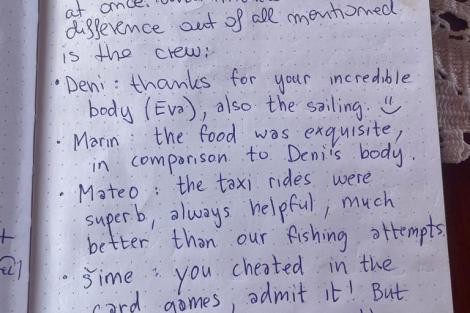 at once.
difference out of all mentioned
is the crew:
• Deni: thanks for your incredible
body (Eva), also the sailing.
• Marin: the food was exquisite,
in comparison to Deni's body.
• Mateo: the taxi rides were
superb, always helpful, much
better than our fishing attempts.
• Šime: you cheated in the
card games, admit it! But